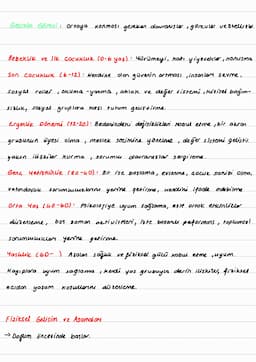 Gelişim Görevi: Ortaya konması gereken davranışlar, görevler ve özelliktir.
Bebeklik ve İlk Çocukluk (0-6 yaş): Yürümeyi, katı yiyecekler, konuşma
Son Çocukluk (6-12): Kendine olan güvenin artması, insanları sevme,
sosyal roller, okuma-yazma, ahlak ve değer sistemi, kişisel bağım-
sızlık, sosyal gruplara karşı tutum geliştirme.
Ergenlik Dönemi (12-20): Bedenindeki değişiklikleri kabul etme, bir akran
grubunun üyesi olma, meslek seçimine yönelme, değer sistemi geliştir.
yakın ilişkiler kurma, sorumlu davranışlar sergileme.
Genç Yetişkinlik (20-40): Bir işe başlama, evlenme, çocuk sahibi olma,
vatandaşlık sorumluluklarını yerine getirme, kendini ifade edebilme
Orta Yaş (40-60): Psikolojiye uyum sağlama, eşle ortak etkinlikler
düzenleme, boş zaman aktiviteleri, işte başarılı performans, toplumsal
sorumlulukları yerine getirme.
Yaşlılık (60- ): Azalan sağlık ve fiziksel gücü kabul etme, uyum
Kayıplara uyum sağlama, kendi yaş grubuyla derin ilişkiler, fiziksel
açıdan yaşam koşullarını düzenleme.
Fiziksel Gelişim ve Aşamaları
→ Doğum öncesinde başlar.